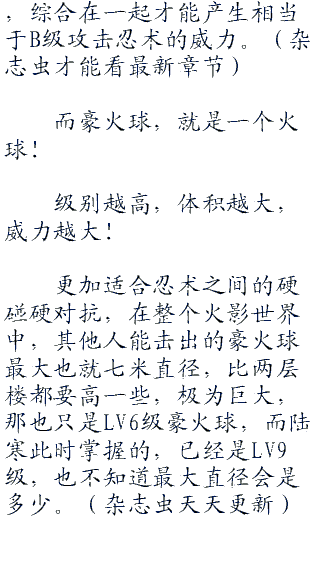 ，综合在一起才能产生相当
于B级攻击忍术的威力。（杂
志虫才能看最新章节）
而豪火球，就是一个火
球！
级别越高，体积越大，
威力越大！
更加适合忍术之间的硬
碰硬对抗，在整个火影世界
中，其他人能击出的豪火球
最大也就七米直径，比两层
楼都要高一些，极为巨大，
那也只是LV6级豪火球，而陆
寒此时掌握的，已经是LV9
级，也不知道最大直径会是
多少。（杂志虫天天更新）